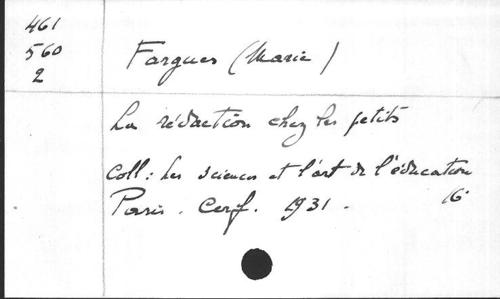 461
560
2
Fargues (Marie)
La rédaction chez les petits
Coll : Les sciences et l'art de l'éducation
Paris . Cerf . 1931 . 16°